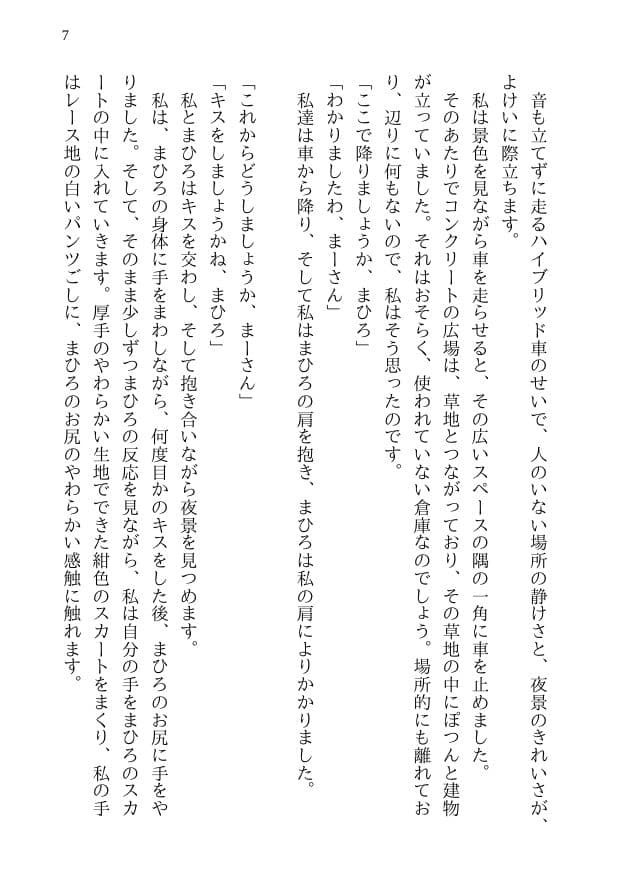 7
　音も立てずに走るハイブリッド車のせいで、人のいない場所の静けさと、夜景のきれいさが、
よけいに際立ちます。
　私は景色を見ながら車を走らせると、その広いスペースの隅の一角に車を止めました。
　そのあたりでコンクリートの広場は、草地とつながっており、その草地の中にぽつんと建物
が立っていました。それはおそらく、使われていない倉庫なのでしょう。場所的にも離れてお
り、辺りに何もないので、私はそう思ったのです。
「ここで降りましょうか、まひろ」
「わかりましたわ、まーさん」
　私達は車から降り、そして私はまひろの肩を抱き、まひろは私の肩によりかかりました。
「これからどうしましょうか、まーさん」
「キスをしましょうかね、まひろ」
　私とまひろはキスを交わし、そして抱き合いながら夜景を見つめます。
　私は、まひろの身体に手をまわしながら、何度目かのキスをした後、まひろのお尻に手をや
りました。そして、そのまま少しずつまひろの反応を見ながら、私は自分の手をまひろのスカ
ートの中に入れていきます。厚手のやわらかい生地でできた紺色のスカートをまくり、私の手
はレース地の白いパンツごしに、まひろのお尻のやわらかい感触に触れます。